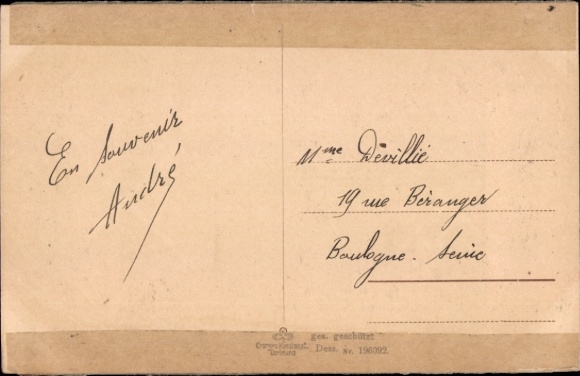 En souvenir
André
Mme Dévillié
19 rue Béranger
Boulogne. Seine
ges. geschützt
Dess. Nr. 196092.